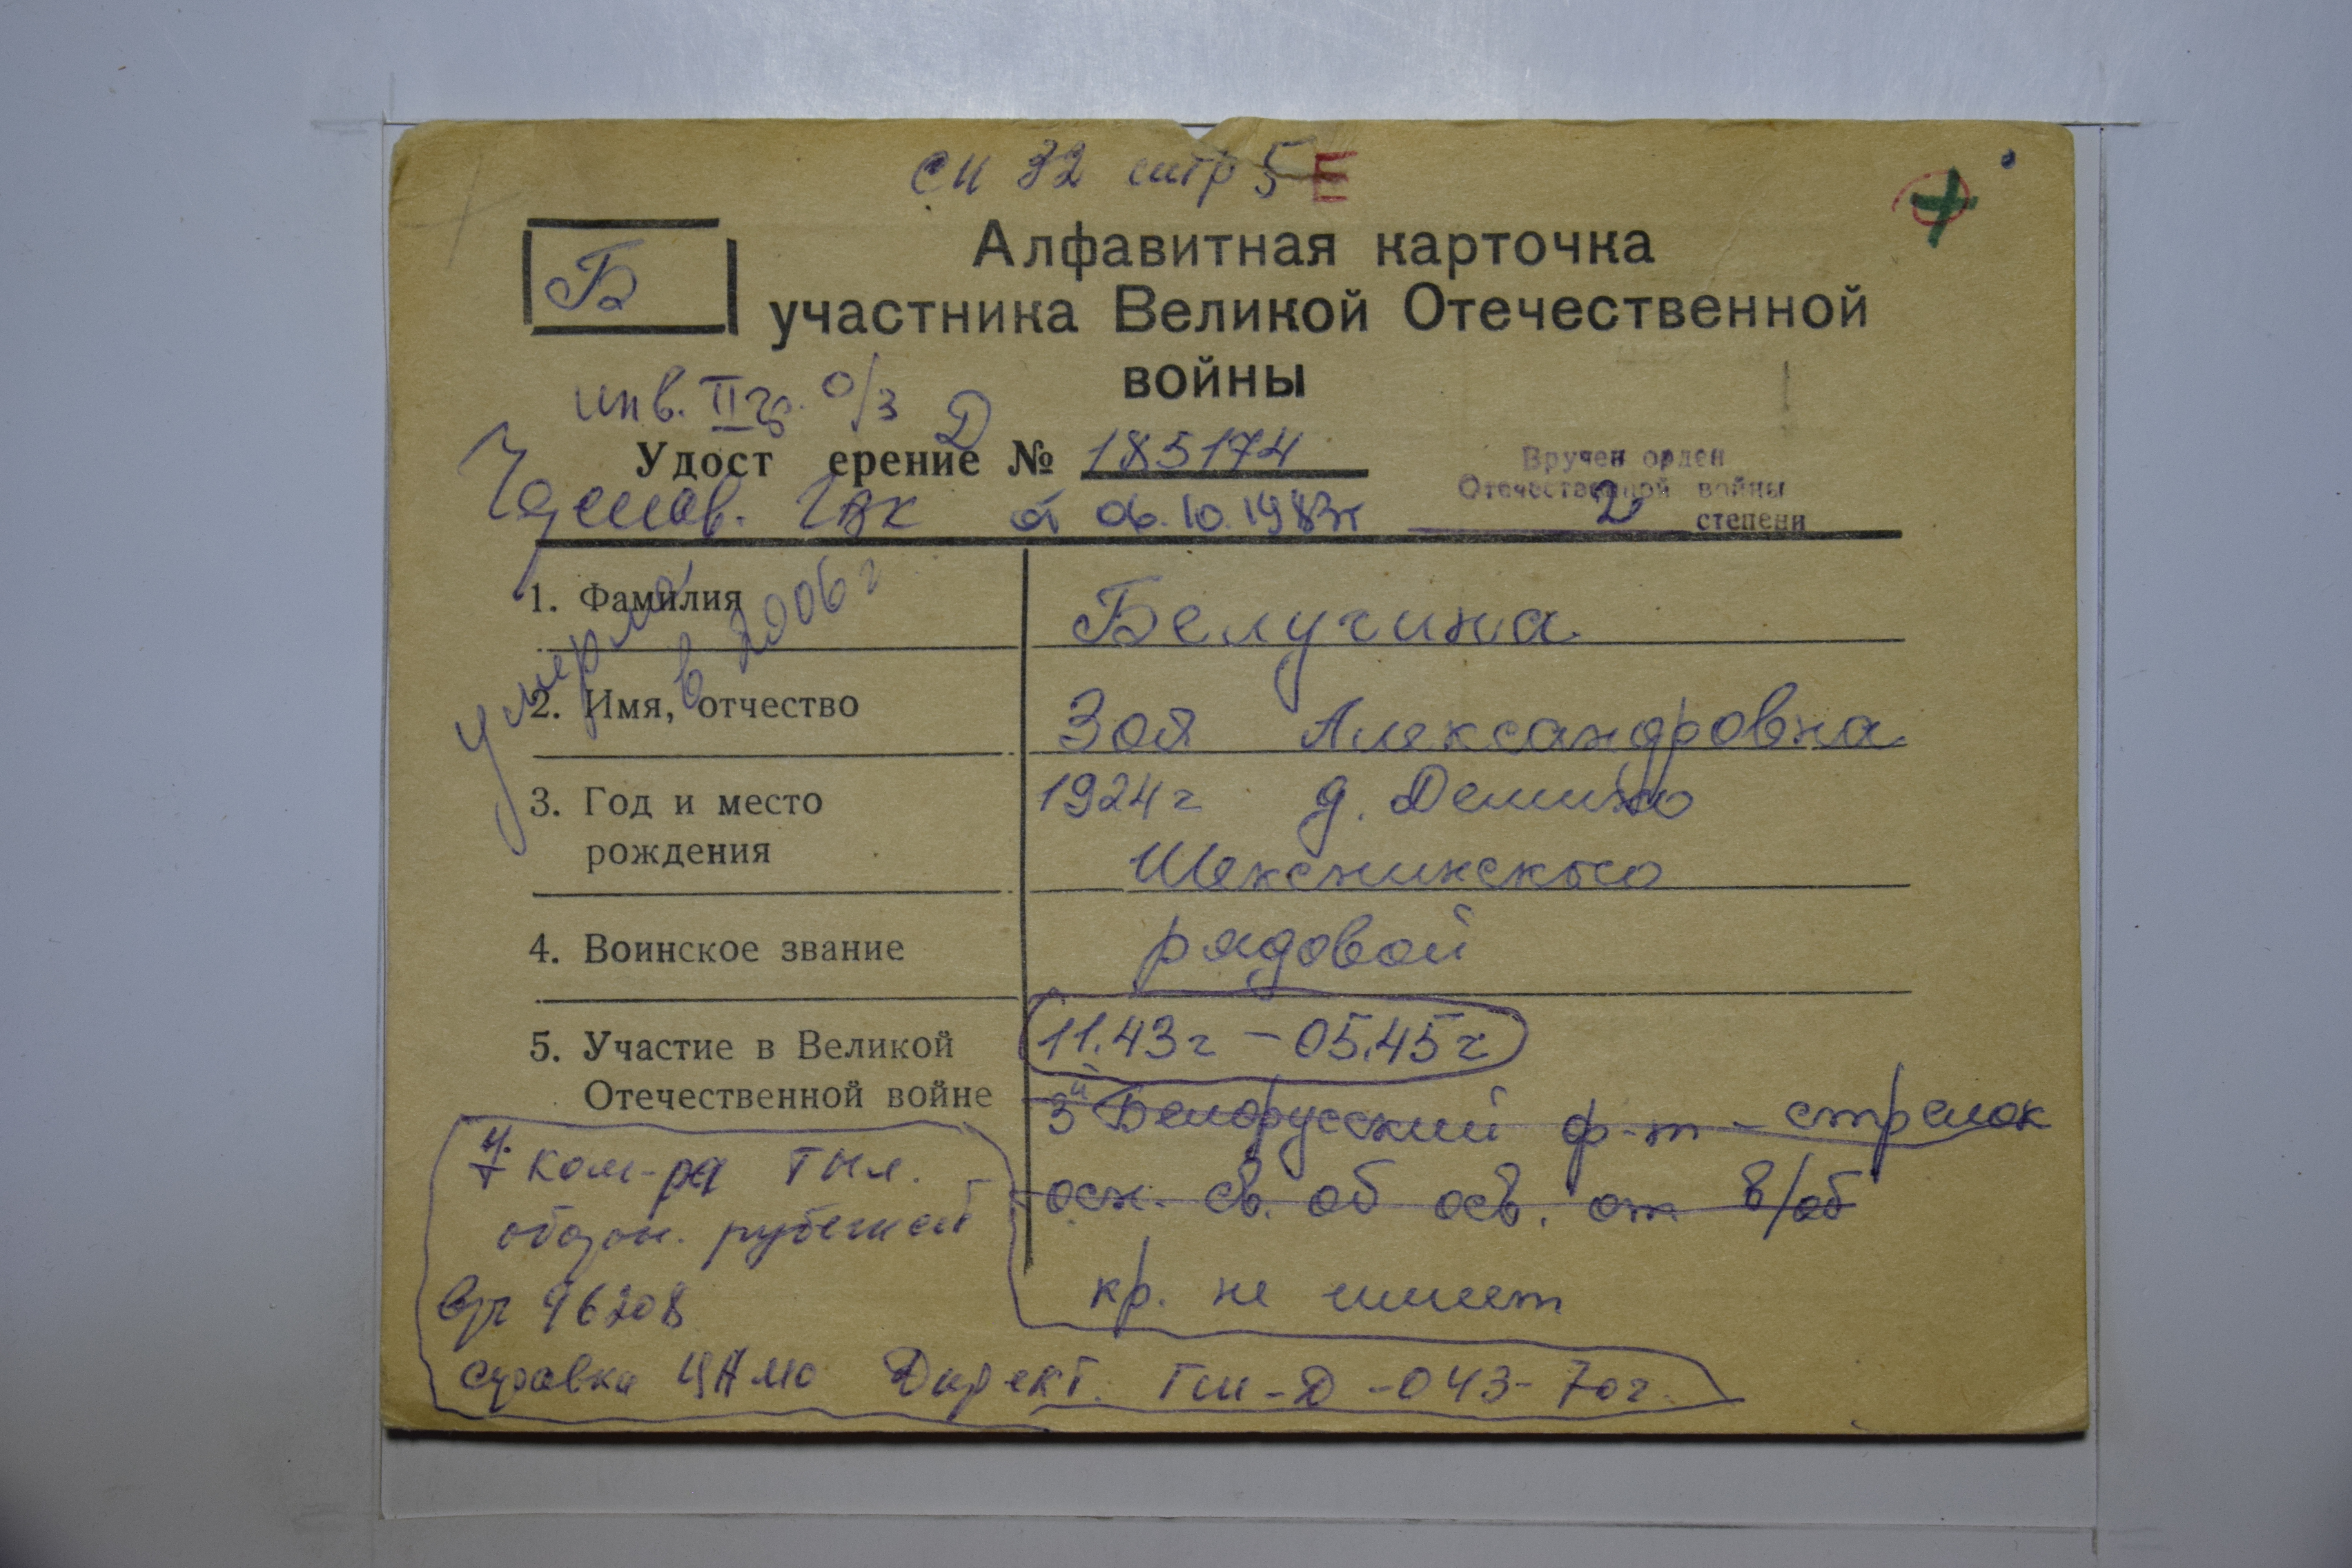 сп 32 стр 5 Е
Б
Алфавитная карточка
участника Великой Отечественной
войны
инв. II гр. о/з Д
Удост ерение № 185174
ГВК от 06.10.1983г
Вручен орден
Отечественной войны
2 степени
умерла в 2006 г
1. Фамилия Белугина
2. Имя, отчество Зоя Александровна
3. Год и место 1924г д. Демино
рождения Шекснинского
4. Воинское звание рядовой
5. Участие в Великой 11.43г - 05.45г
Отечественной войне 3й Белорусский ф-т - стрелок
осн. св. об осв. от в/об
кр. не имеет
ком-ра тыл.
оборон. рубежей
96208
справка ЦАМО Директ. ГШ-Д-043-70г.